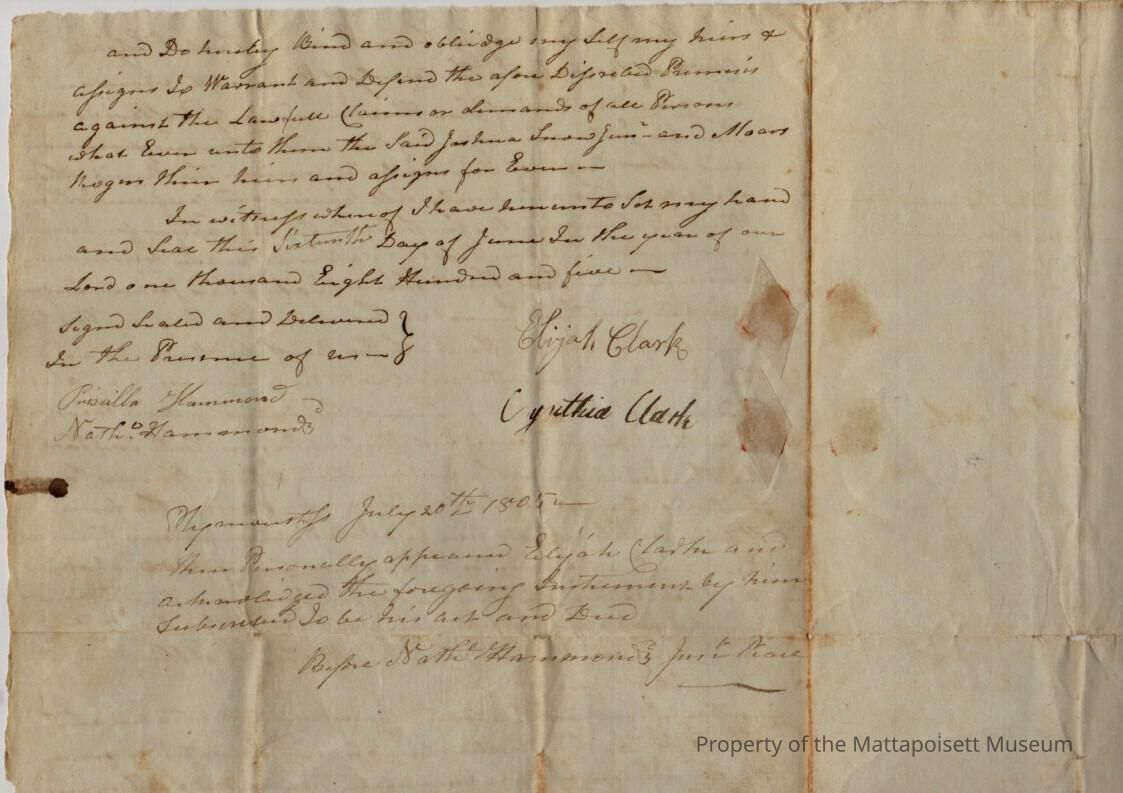 and Do hereby Bind and obliedge my Self my heirs &
assigns To Warrant and Defend the afore Discribed Premisis
against the Lawfull Claims or demands of all Persons
what Ever unto them the Said Joshua Snow Junr and Moars
Rogers thier heirs and assigns for Ever —
In witness whereof I have hereunto Set my hand
and Seal this Sixteenth Day of June In the year of our
Lord one thousand Eight Hundred and five —
Signd Sealed and Delivered }
In the Presence of us —
Elijah Clark
Priscilla Hammond
Cynthia Clark
Nathl Hammond
Plymouth Ss July 20th 1805 —
then Personally appeared Elijah Clark and
acknolidged the foregoing Instrument by him
Subscribed To be his act and Deed
Before Nathl Hammond Just Peace
Property of the Mattapoisett Museum